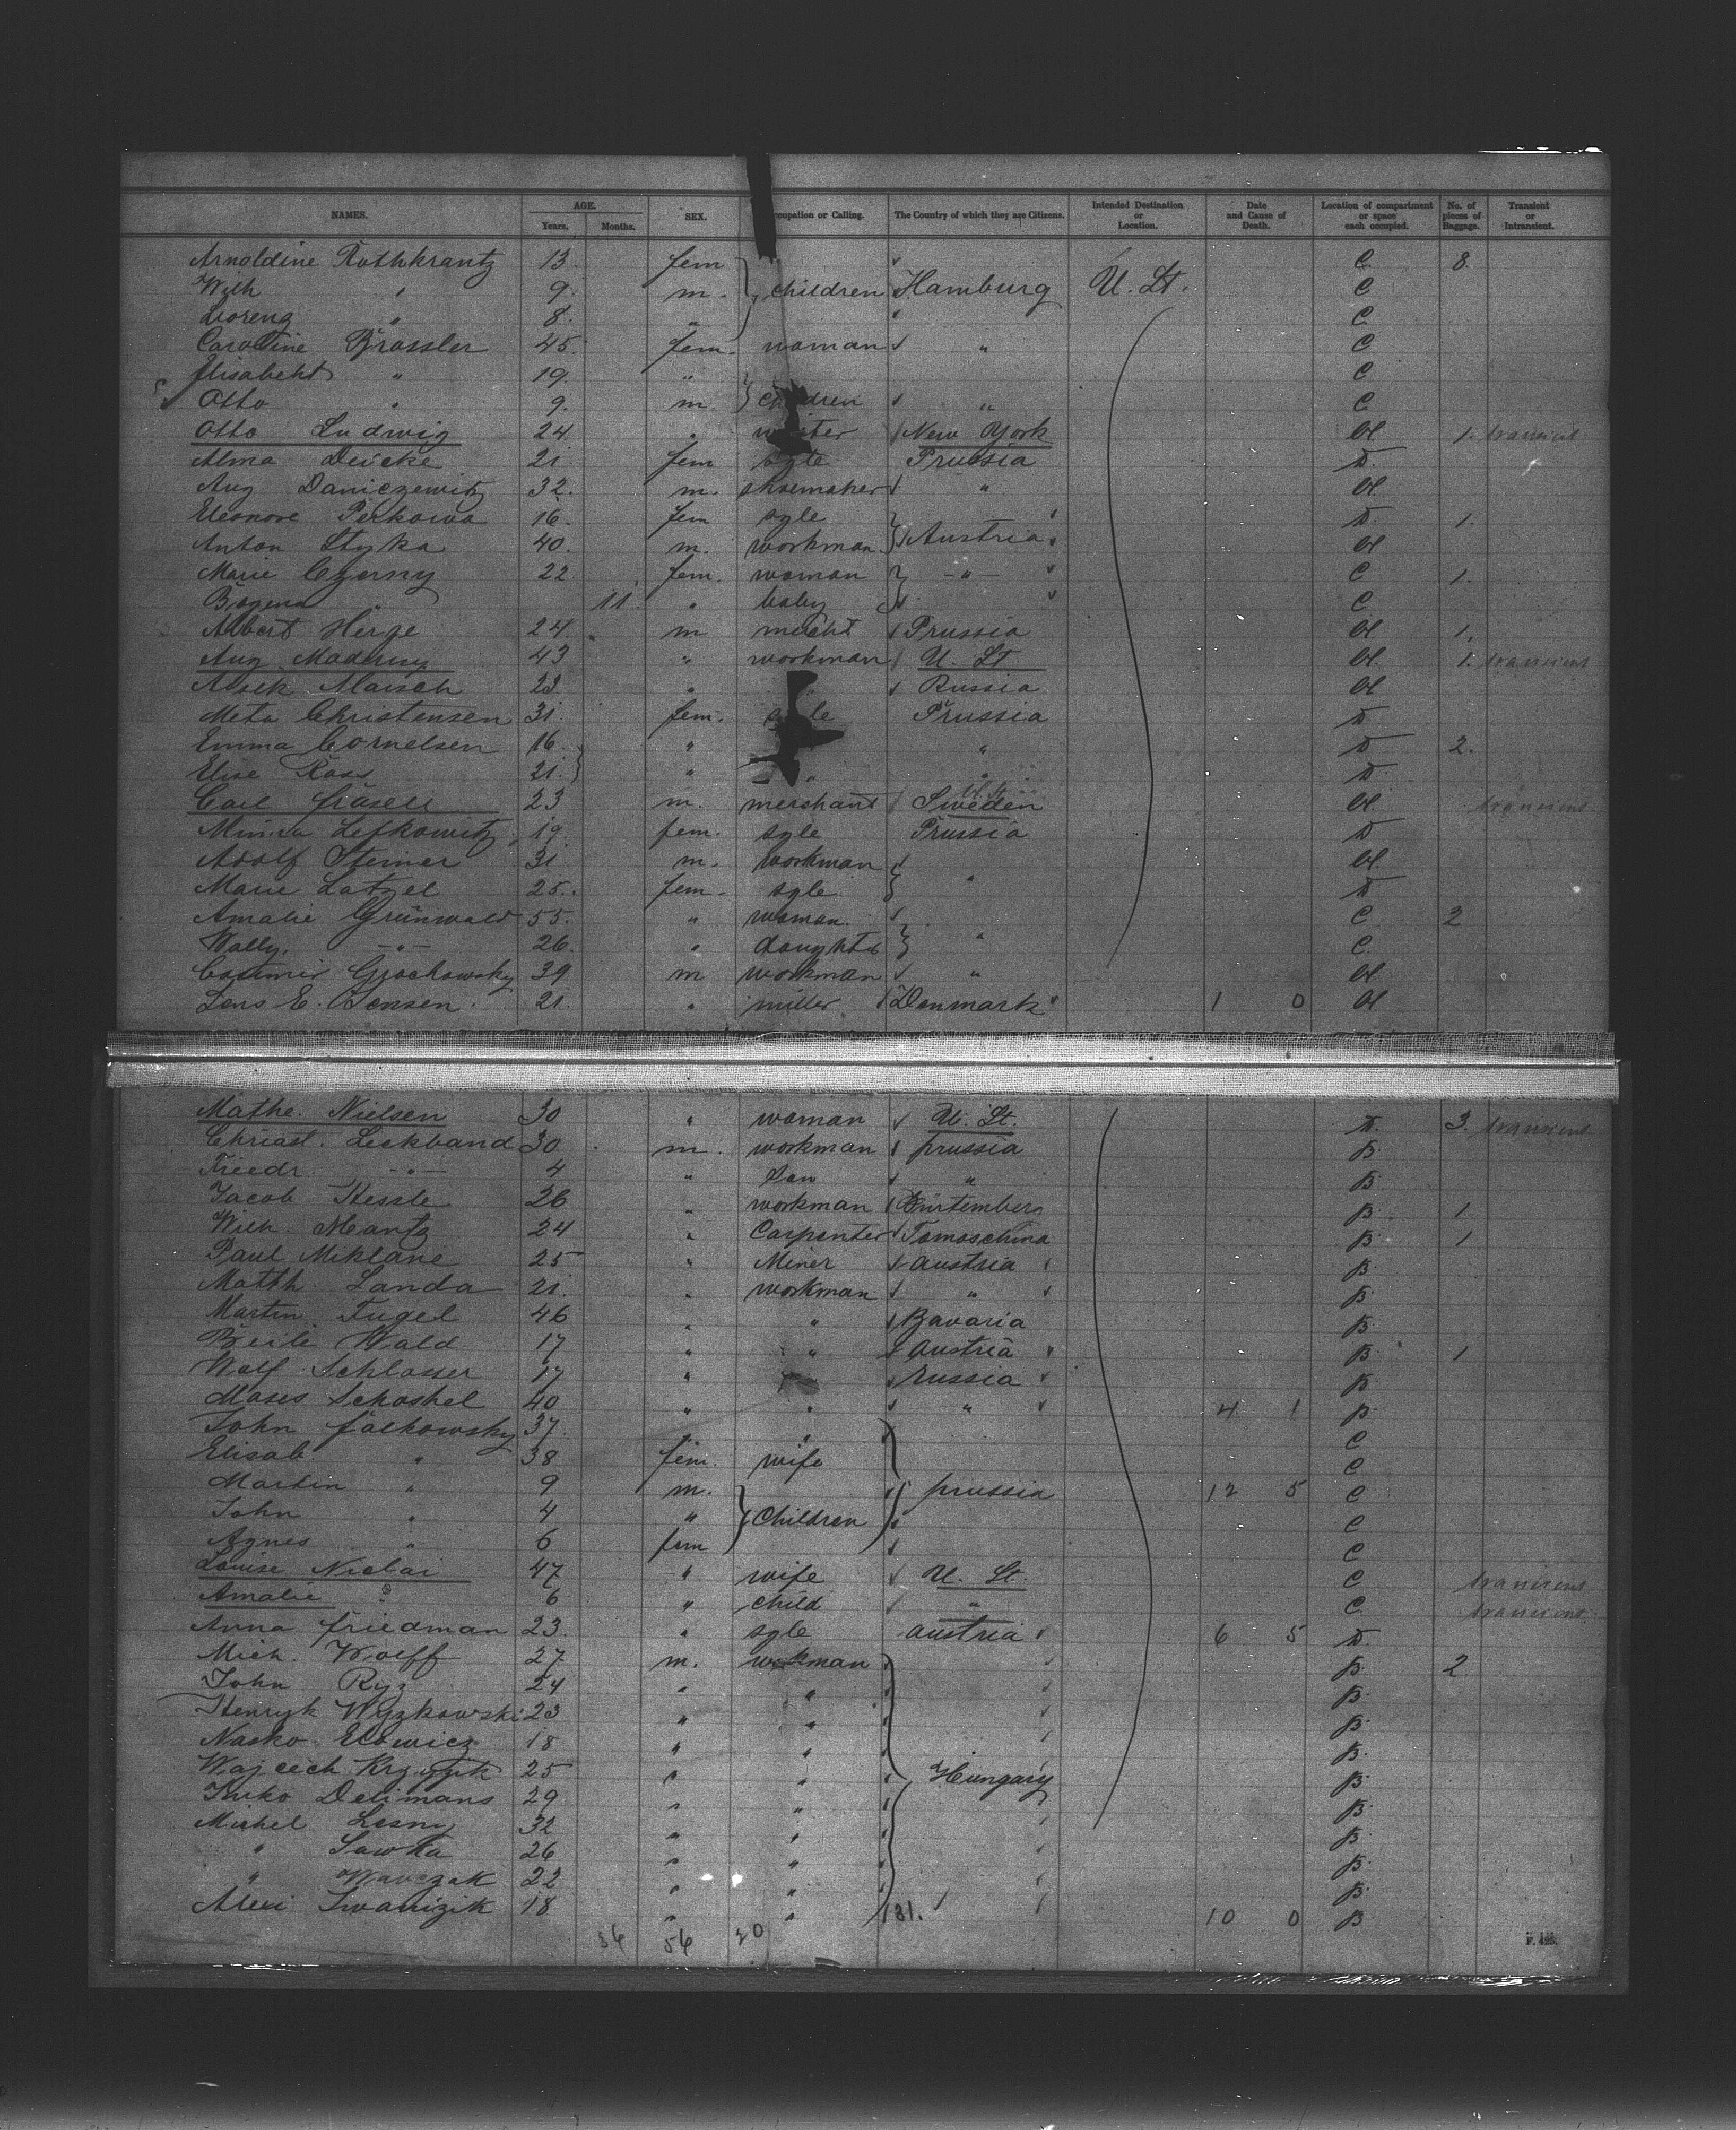 NAMES. AGE. Years. Months. SEX. Occupation or Calling. The Country of which they are Citizens. Intended Destination or Location. Date and Cause of Death. Location of compartment or space each occupied. No. of pieces of Baggage. Transient or Intransient.
Arnoldine Rothkrantz 13. fem " C 8.
Wilh " 9. m. children Hamburg U. St. C
Lorenz " 8. " " C
Caroline Brossler 45. fem. woman " C
Elisabeht " 19. " C
Otto " 9. m. children " C
Otto Ludwig 24 " waiter New York A 1. transient
Alma Deicke 21. fem sgle Prussia D.
Aug Daniczewitz 32. m. shoemaker " A
Eleonore Perkowa 16. fem sgle D. 1.
Anton Styka 40. m. workman Austria A
Marie Czerny 22. fem. woman " C 1.
Bozena " 11. " baby C
Albert Herge 24. m mecht Prussia A 1.
Aug. Maderny 43 " workman U. St. A 1. transient
Maisch 23. " " Russia A
Meta Christensen 31. fem. sgle Prussia D
Emma Cornelsen 16. " " D 2.
Elise Rass 21. " " " D.
Carl 23 m. merchant U. St. Sweden A transient
Minna Lefkowitz 19. fem. sgle Prussia D
Adolf Steiner 31 m. workman A
Marie Latzel 25. fem. sgle " D
Amalie Grünwald 55. " woman. C 2
Wally. " 26. " daughter " C
Casimir Grochowsky 39 m workman " A
Jens E. Jensen. 21. " miller Denmark 1 0 A
Mathe. Nielsen 30 " woman U. St. D. 3. transient
Christ. Leckband 30 m. workman prussia B.
Friedr. " 4 " Son " B.
Jacob Hessle 26 " workman Würtemberg B. 1
Wilh. Mantz 24 " Carpenter Tomaschina B. 1
Paul Miklane 25 " Miner austria B.
Matth. Landa 21. " workman " B.
Martin Fugel 46 " " Bavaria B.
Beile Wald 17 " " Austria B. 1
Wolf Schlosser 17 " " Russia B
Moses Schoshel 40 " " " 4 1 B.
John Falkowsky 37. " " C
Elisab. " 38 fem. wife C
Martin " 9 m. prussia 12 5 C
John " 4 " Children C
Agnes " 6 fem C
Louise Niclai 47 " wife U. St. C transient
Amalie " 6 " child " C transient
Anna Friedman 23. " sgle austria 6 5 D.
Mich. Wolff 27 m. workman B. 2
John Ryz 24 " " B.
Henryk Wyzkowski 23 " " B.
Nasko Elowicz 18 " " B.
Wajcech 25 " " Hungary B.
Iwko Delimans 29 " " B.
Michel Lesny 32 " " B.
" Sawka 26 " " B.
" Wawczak 22 " " B.
Alexi Iwanizik 18 " " 31. 10 0 B
36 56 20